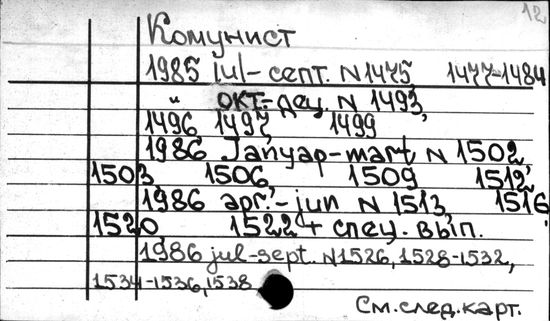 12
Комунист
1985 iul-септ. N1475, 1477-1484
" окт-дец. N 1493,
1496 1497, 1499
1986 Јануар-mart, N 1502,
1503, 1506, 1509 1512,
1986 apr.-jun N 1513, 1516,
1520 1522 + спец. вып.
1986 jul-sept. N1526, 1528-1532,
1534-1536, 1538
См. след. карт.